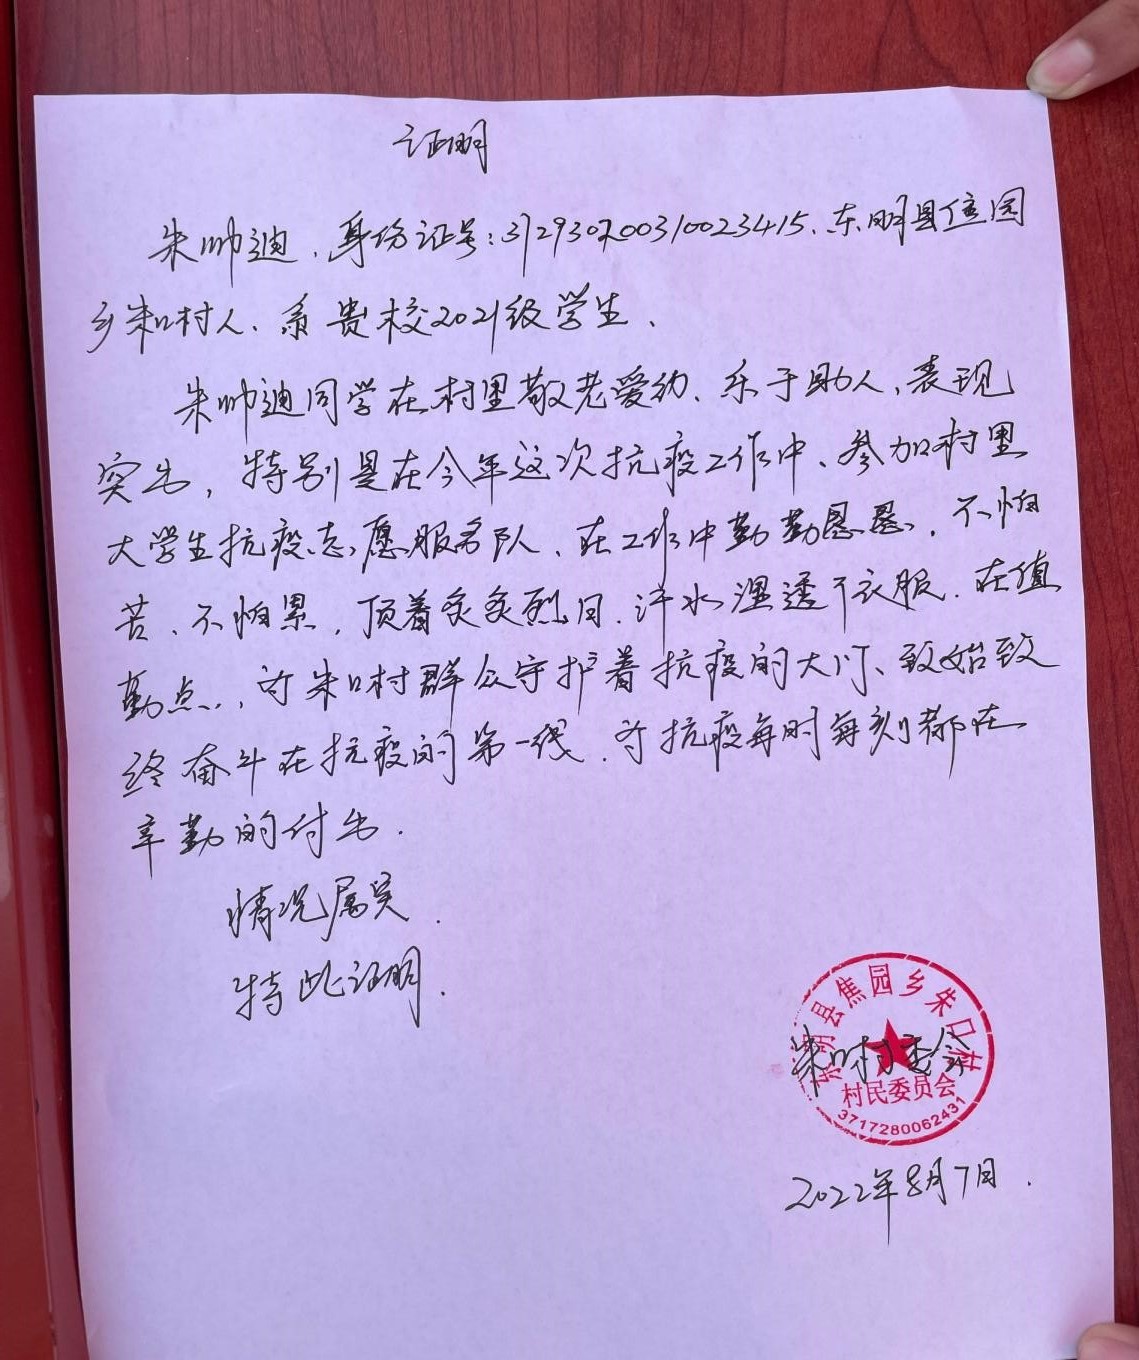 证明
朱帅迪、身份证号:372930200310023415、东明县焦园
乡朱口村人、系贵校2021级学生、
朱帅迪同学在村里敬老爱幼、乐于助人、表现
突出,特别是在今年这次抗疫工作中、参加村里
大学生抗疫志愿服务队、在工作中勤勤恳恳,不怕
苦、不怕累,顶着炙炙烈日.汗水湿透了衣服.在值
勤点,为朱口村群众守护着抗疫的大门、致始致
终奋斗在抗疫的第一线.为抗疫每时每刻都在
辛勤的付出.
情况属实.
特此证明.
朱口村委会
东明县焦园乡朱口村
村民委员会
3717280062431
2022年8月7日.